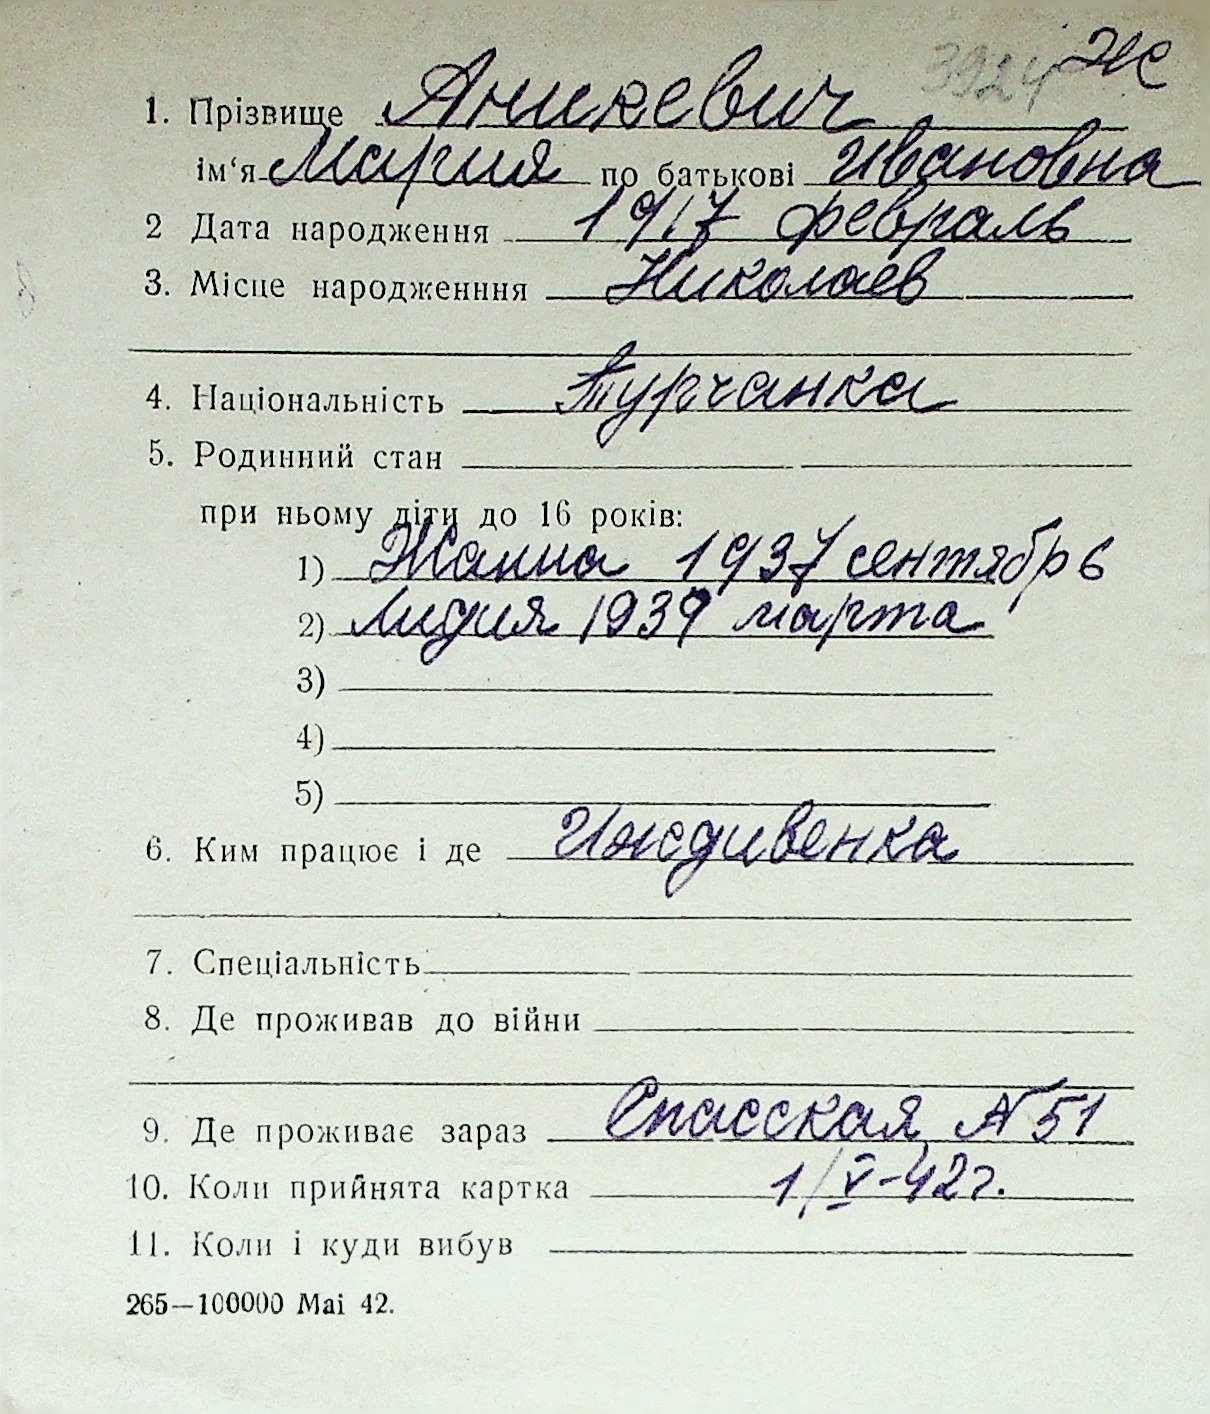 3924 Ж
1. Прізвище Аникевич
ім‘я Мария по батькові Ивановна
2 Дата народження 1917 февраль
3. Місце народженння Николаев
4. Національність Турчанка
5. Родинний стан
при ньому діти до 16 років:
1) Жанна 1937 сентябрь
2) Лидия 1939 марта
3)
4)
5)
6. Ким працює і де Иждивенка
7. Спеціальність
8. Де проживав до війни
9. Де проживає зараз Спасская № 51
10. Коли прийнята картка 1/V-42г.
11. Коли і куди вибув
265—100000 Mai 42.